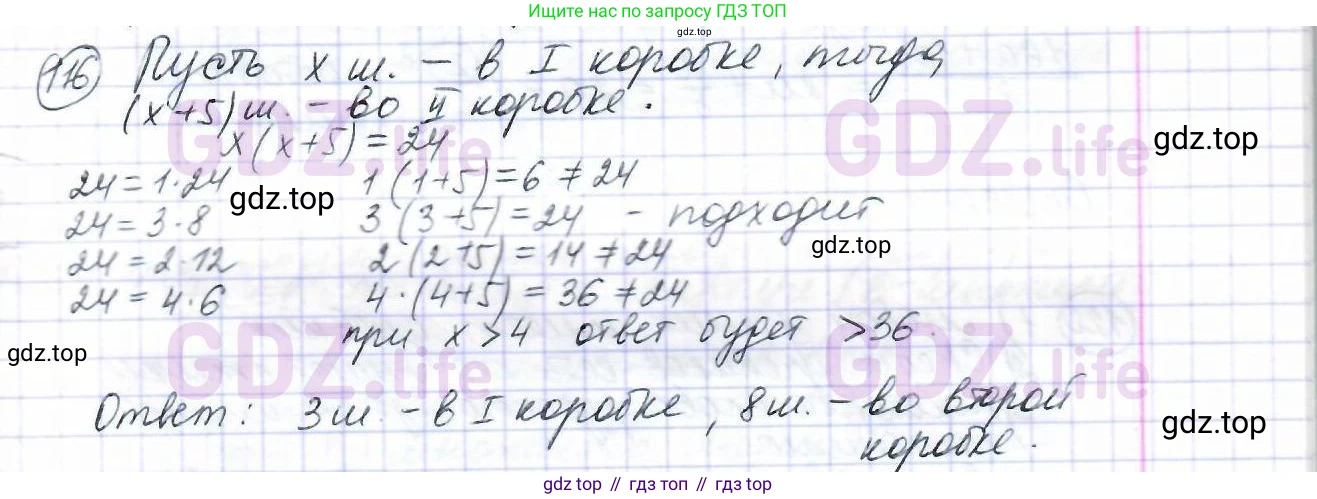 Ищите нас по запросу ГДЗ ТОП
gdz.top
116 Пусть x ш. – в I коробке, тогда
(x+5) ш. – во II коробке.
x(x+5)=24
24=1·24 1(1+5)=6≠24
24=3·8 3(3+5)=24 – подходит
24=2·12 2(2+5)=14≠24
24=4·6 4·(4+5)=36≠24
при x>4 ответ будет >36.
Ответ: 3 ш. – в I коробке, 8 ш. – во второй
коробке.
GDZ.life
GDZ.life
GDZ.life
GDZ.life
gdz.top
gdz.top
gdz.top
gdz.top
gdz.top
gdz.top // гдз.топ // gdz.top